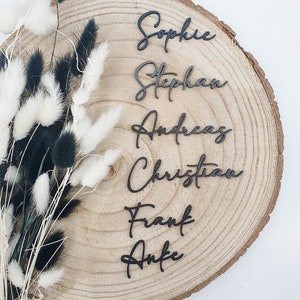 Sophie
Stephan
Andreas
Christian
Frank
Anke